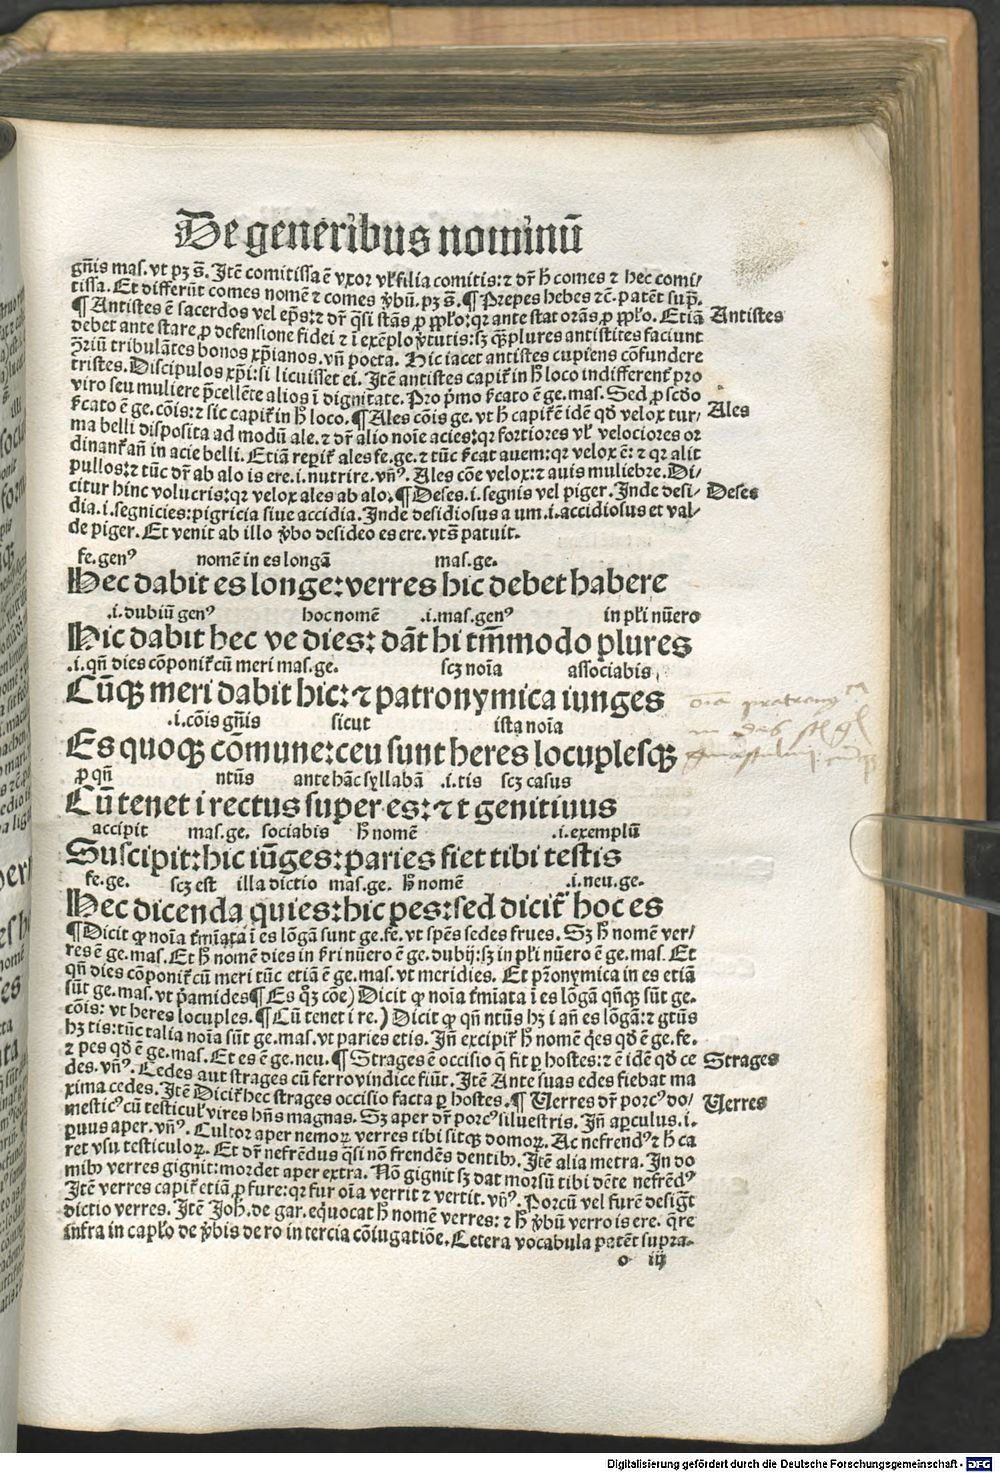 De generibus nominū
gn̄is mas. vt pꝫ s̄. Itē comitissa ē vxor vl̓ filia comitis: ⁊ dr̄ h̄ comes ⁊ hec comi/
tissa. Et differūt comes nomē ⁊ comes v̓bū. pꝫ s̄. ¶ Prepes hebes ⁊c̄. patēt sup̄.
¶ Antistes ē sacerdos vel ep̄s: ⁊ dr̄ q̄si stās ꝓ pp̄lo: qꝛ ante stat orās ꝓ pp̄lo. Etiā Antistes
debet ante stare ꝓ defensione fidei ⁊ ī exēplo v̓tutis: sꝫ plures antistites faciunt
ꝯriū tribulātes bonos xp̄ianos. vn̄ poeta. Hic iacet antistes cupiens cōfundere
tristes. Discipulos xp̄i: si licuisset ei. Itē antistes capit̄ in h̄ loco indifferent̄ pro
viro seu muliere p̄cellēte alios ī dignitate. Pro p̄mo s̄cato ē ge. mas. Sed ꝓ scdo
s̄cato ē ge. cōis: ⁊ sic capit̄ in h̄ loco. ¶ Ales cōis ge. vt h̄ capit̄ ē idē qd̄ velox tur/ Ales
ma belli disposita ad modū ale. ⁊ dr̄ alio noīe acies: qꝛ fortiores vl̓ velociores or
dinant̄ an̄ in acie belli. Etiā reperit̄ ales fe. ge. ⁊ tūc s̄cat auem: qꝛ velox ē: ⁊ qꝛ alit
pullos: ⁊ tūc dr̄ ab alo is ere. i. nutrire. vn̄ꝰ. Ales cōe velox: ⁊ auis muliebre. Di/
citur hinc volucris: qꝛ velox ales ab alo. ¶ Deses. i. segnis vel piger. Inde desi/ Deses
dia. i. segnicies: pigricia siue accidia. Inde desidiosus a um. i. accidiosus et val/
de piger. Et venit ab illo v̓bo desideo es ere. vt s̄ patuit.
fe. genꝰ nomē in es longā mas. ge.
Hec dabit es longe: verres hic debet habere
.i. dubiū genꝰ hoc nomē .i. mas. genꝰ in pl̓i nūero
Hic dabit hec ve dies: dāt hi tm̄modo plures
.i. qn̄ dies cōponit̄ cū meri mas. ge. scꝫ noīa associabis
Cūqꝫ meri dabit hic: ⁊ patronymica iunges
.i. cōis gn̄is sicut ista noīa
Es quoqꝫ cōmune: ceu sunt heres locuplesqꝫ
ꝓ qn̄ ntūs ante hāc syllabā .i. tis scꝫ casus
Cū tenet i rectus super es: ⁊ t genitiuus
accipit mas. ge. sociabis h̄ nomē .i. exemplū
Suscipit: hic iūges: paries fiet tibi testis
fe. ge. scꝫ est illa dictio mas. ge. h̄ nomē .i. neu. ge.
Hec dicenda quies: hic pes: sed dicit̄ hoc es
¶ Dicit ꝙ noīa t̄mīata ī es lōgā sunt ge. fe. vt spēs sedes frues. Sꝫ h̄ nomē ver/
res ē ge. mas. Et h̄ nomē dies in s̄ri nūero ē ge. dubij: sꝫ in pl̓i nūero ē ge. mas. Et
qn̄ dies cōponit̄ cū meri tūc etiā ē ge. mas. vt meridies. Et pr̄onymica in es etiā
sūt ge. mas. vt p̄amides ¶ Es qꝫ cōe) Dicit ꝙ noīa t̄mīata ī es lōgā qn̄qꝫ sūt ge.
cōis: vt heres locuples. ¶ Cū tenet i re.) Dicit ꝙ qn̄ ntūs hꝫ i an̄ es lōgā: ⁊ gtūs
hꝫ tis: tūc talia noīa sūt ge. mas. vt paries etis. In̄ excipit̄ h̄ nomē q̓es qd̄ ē ge. fe.
⁊ pes qd̄ ē ge. mas. Et es ē ge. neu. ¶ Strages ē occisio q̄ fit ꝑ hostes: ⁊ ē idē qd̄ ce Strages
des. vn̄ꝰ. Cedes aut strages cū ferro vindice fiūt. Itē Ante suas edes fiebat ma
xima cedes. Itē Dicit̄ hec strages occisio facta ꝑ hostes. ¶ Verres dr̄ porcꝰ do/ Verres
mesticꝰ cū testicul̓ vires hn̄s magnas. Sꝫ aper dr̄ porcꝰ siluestris. In̄ aꝑculus. i.
ꝑuus aper. vn̄ꝰ. Cultor aper nemoꝝ verres tibi sitqꝫ domoꝝ. Ac nefrendꝰ ⁊ h̄ ca
ret vsu testiculoꝝ. Et dr̄ nefrēdus q̄si nō frendēs dentibꝫ. Itē alia metra. In do
mibꝫ verres gignit: mordet aper extra. Nō gignit sꝫ dat morsū tibi dēte nefrēdꝰ
Itē verres capit̄ etiā ꝓ fure: qꝛ fur oīa verrit ⁊ vertit. vn̄ꝰ. Porcū vel furē desigt̄
dictio verres. Itē Joh. de gar. equocat h̄ nomē verres: ⁊ h̄ v̓bū verro is ere. q̄re
infra in cap̄lo de v̓bis de ro in tercia cōiugatiōe. Cetera vocabula patēt supra.
o iij
Digitalisierung gefördert durch die Deutsche Forschungsgemeinschaft - DFG